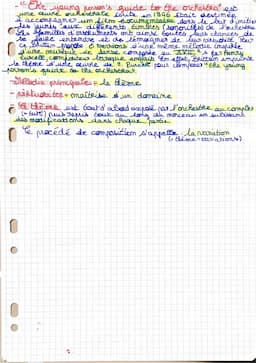 "The young person's guide to the orchestra" est
une œuvre orchestrale écrite en 1946 était destinée
à accompagner un film documentaire dans le but d'initier
les jeunes aux différents timbres (sonorités) de l'orchestre
Les familles d'instruments ont ainsi toutes leur chances de
se faire entendre et de témoigner de leur
Britten 6 versions d'une même mélodie inspirée
d'une musique de danse composée au par Henry
Purcell, compositeur anglais. En effet, Britten emprunte
le thème d'une œuvre de H. Purcell pour composer "the young
person's guide to the orchestra".
Mélodie principale = le thème
- virtuosité = maîtrise d'un domaine
Le thème est tout d'abord exposé par l'orchestre au complet
(= tutti) puis repris tout au long du morceau en subissant
des modifications dans chaque partie.
Le procédé de composition s'appelle la variation
(= thème + variations)